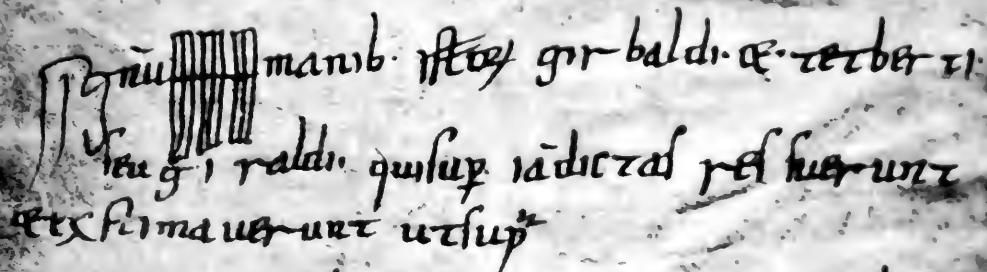 Signū manib· istoꝝ girbaldi· &· tetberti·
seu giraldi· qui sup̱ iādictas res fuerunt
et xfirmauerunt ut sup̃